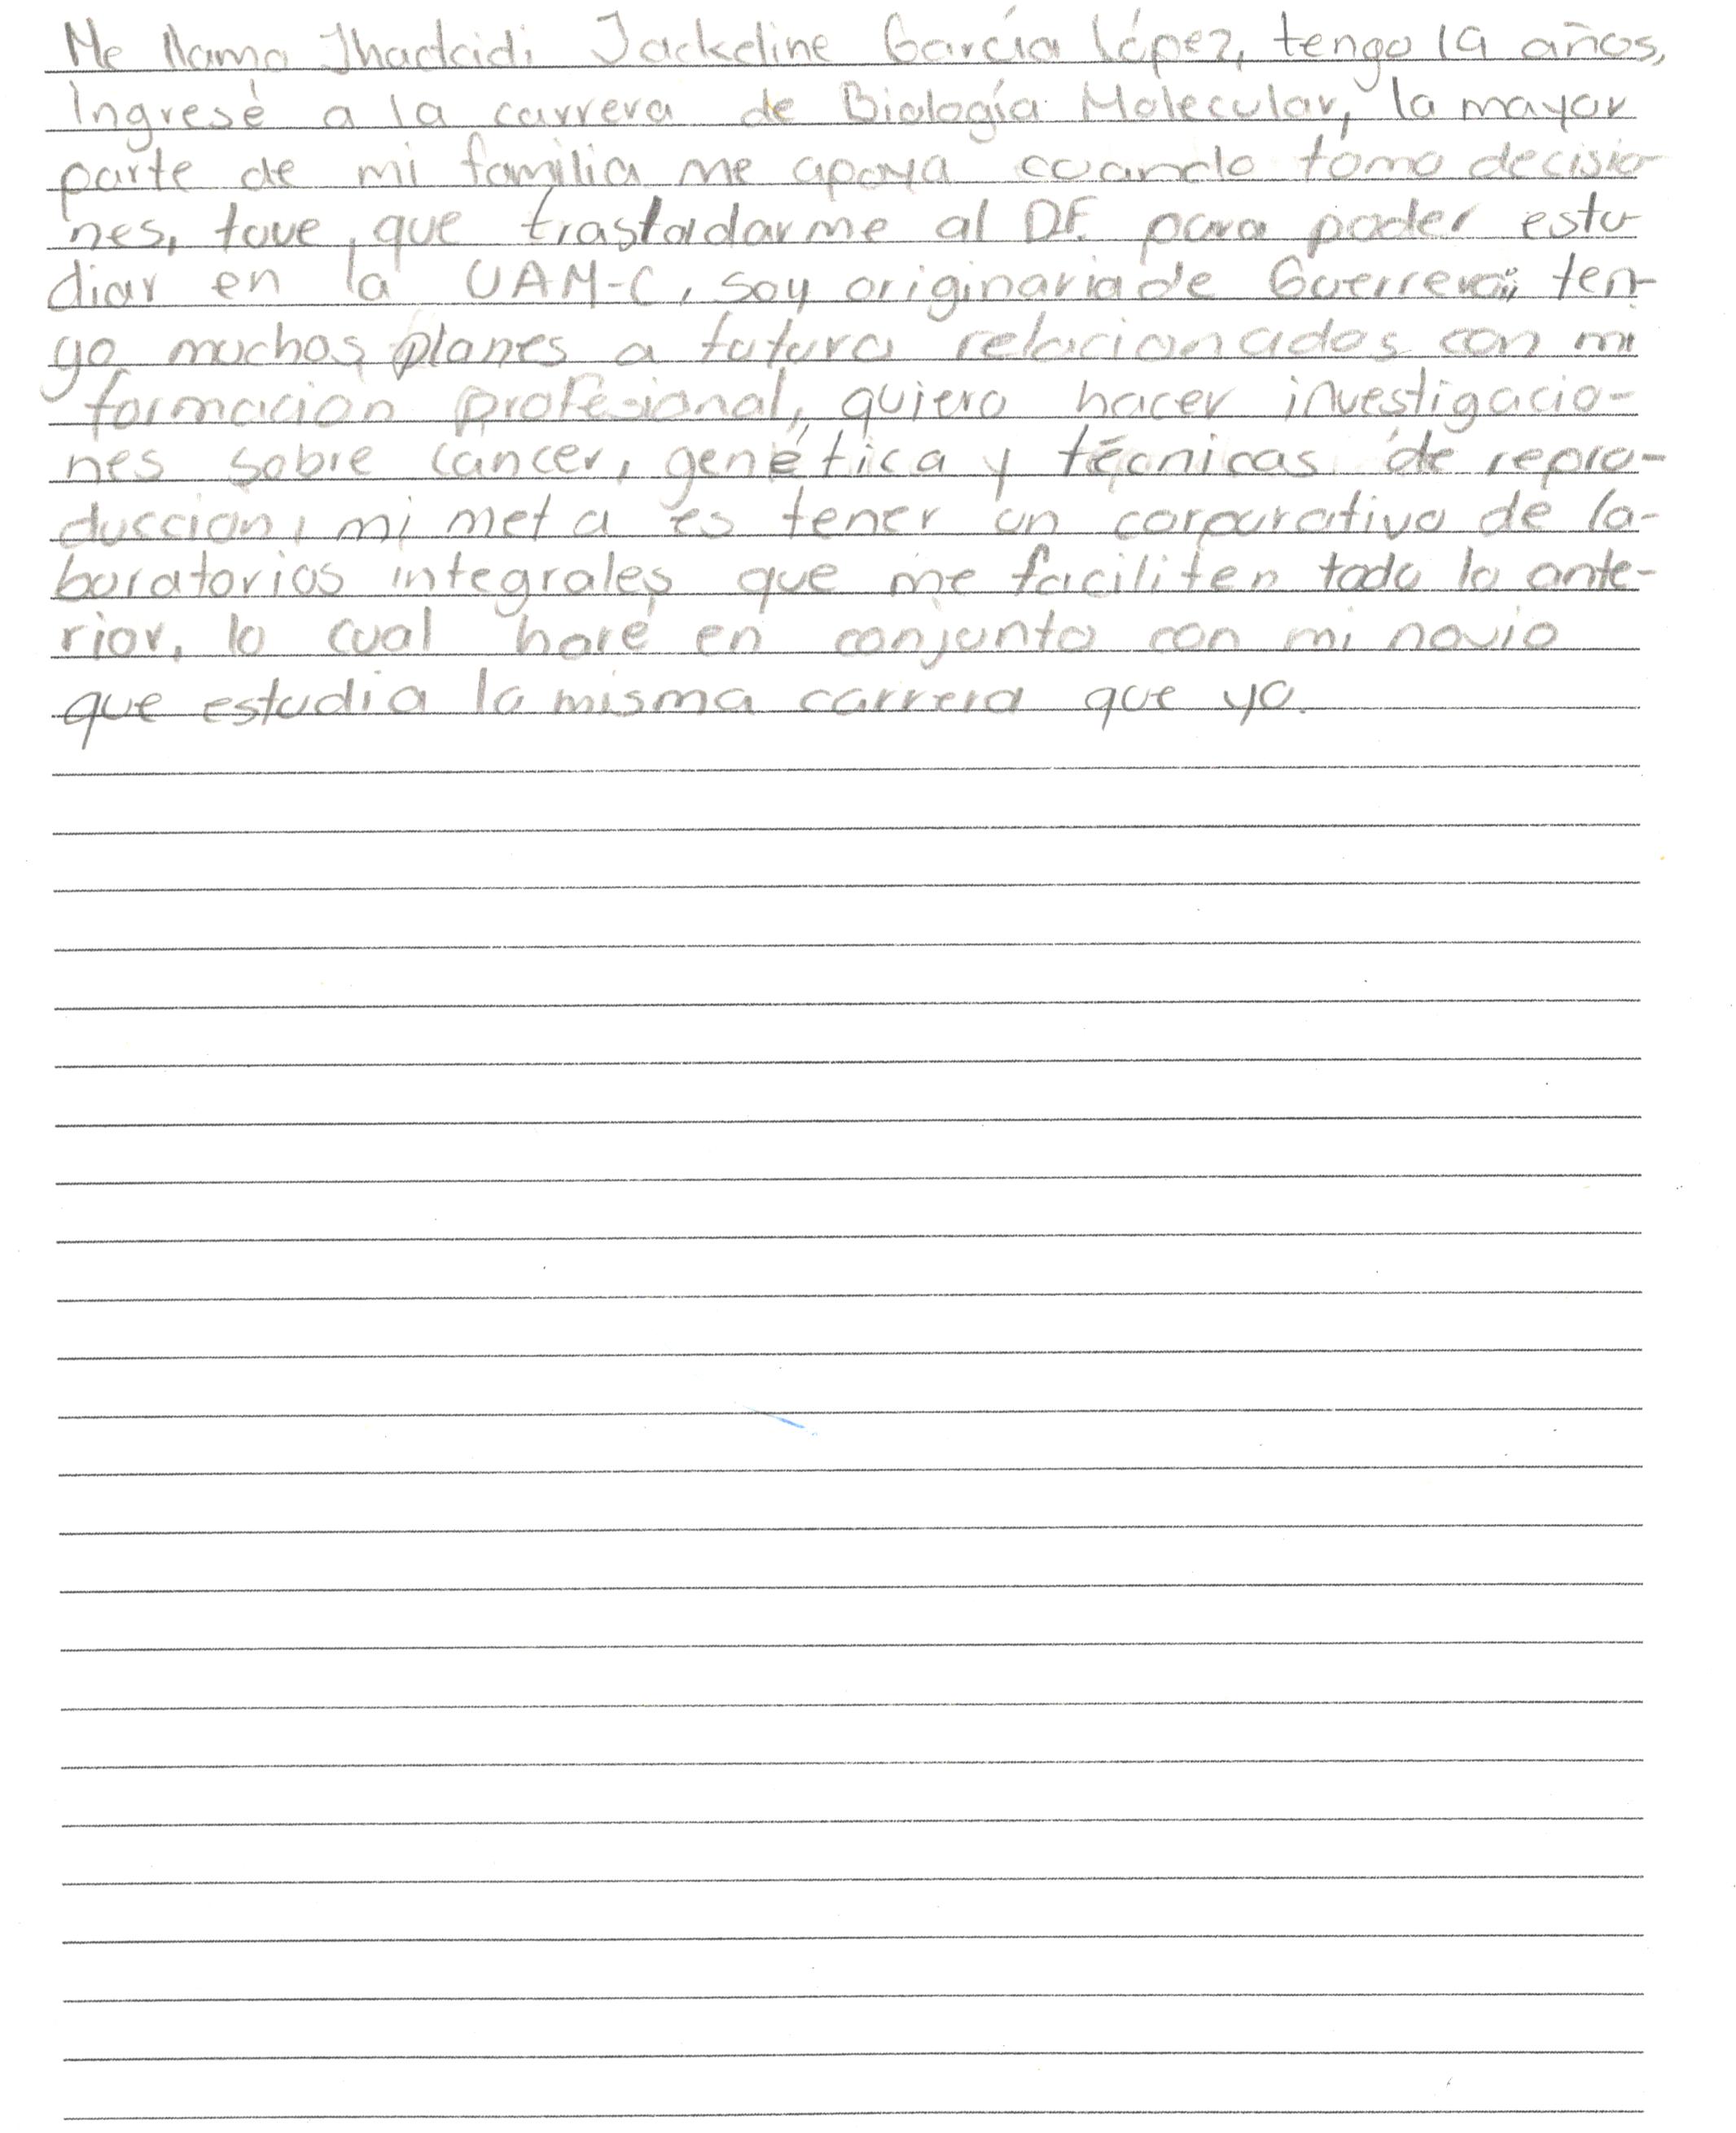 Me llamo Jhadcidi Jackeline García López, tengo 19 años,
Ingresé a la carrera de Biología Molecular, la mayor
parte de mi familia me apoya cuando tomo decisio-
nes, tuve que trasladarme al D.F. para poder estu-
diar en la UAM-C, soy originaria de Guerrero; ten-
go muchos planes a futuro relacionados con mi
formación profesional, quiero hacer investigacio-
nes sobre cancer, genética y técnicas de repro-
duccion, mi meta es tener un corporativo de la-
boratorios integrales que me faciliten todo lo ante-
rior, lo cual haré en conjunto con mi novio
que estudia la misma carrera que yo.